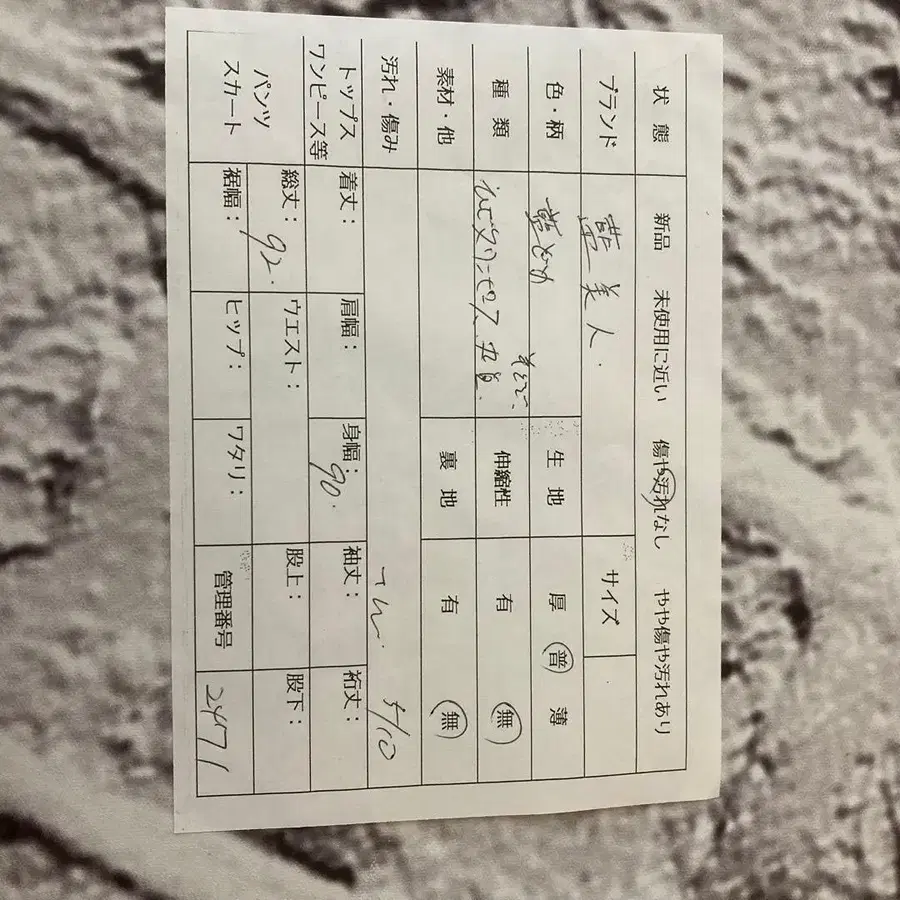 状態 新品 未使用に近い 傷や汚れなし やや傷や汚れあり
ブランド 藍美人. サイズ
色・柄 藍染め 生地 厚 普 薄
種類 伸縮性 有 無
素材・他 裏地 有 無
汚れ・傷み 5/10
トップス ワンピース等 着丈: 肩幅: 身幅: 90. 袖丈: 裄丈:
パンツ スカート 総丈: 92. ウエスト: 股上: 股下:
裾幅: ヒップ: ワタリ: 管理番号 2471